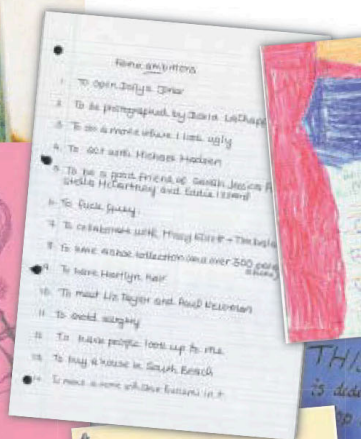 Some ambitions
1. To open
2. To be photographed by David LaChapelle
3. To do a movie where I look ugly
4. To act with Michael Madsen
5. To be a good friend of Jessica
Stella McCartney and Eddie Izzard
6. To fuck
7. To collaborate with Missy Elliott +
8. To have a shoe collection and over 300 pairs
9. To have hair
10. To meet Liz Taylor and Paul Newman
11. To avoid surgery
12. To have people look up to me
13. To buy a house in South Beach
14. To make a movie with Steve Buscemi in it
THIS
is dedi